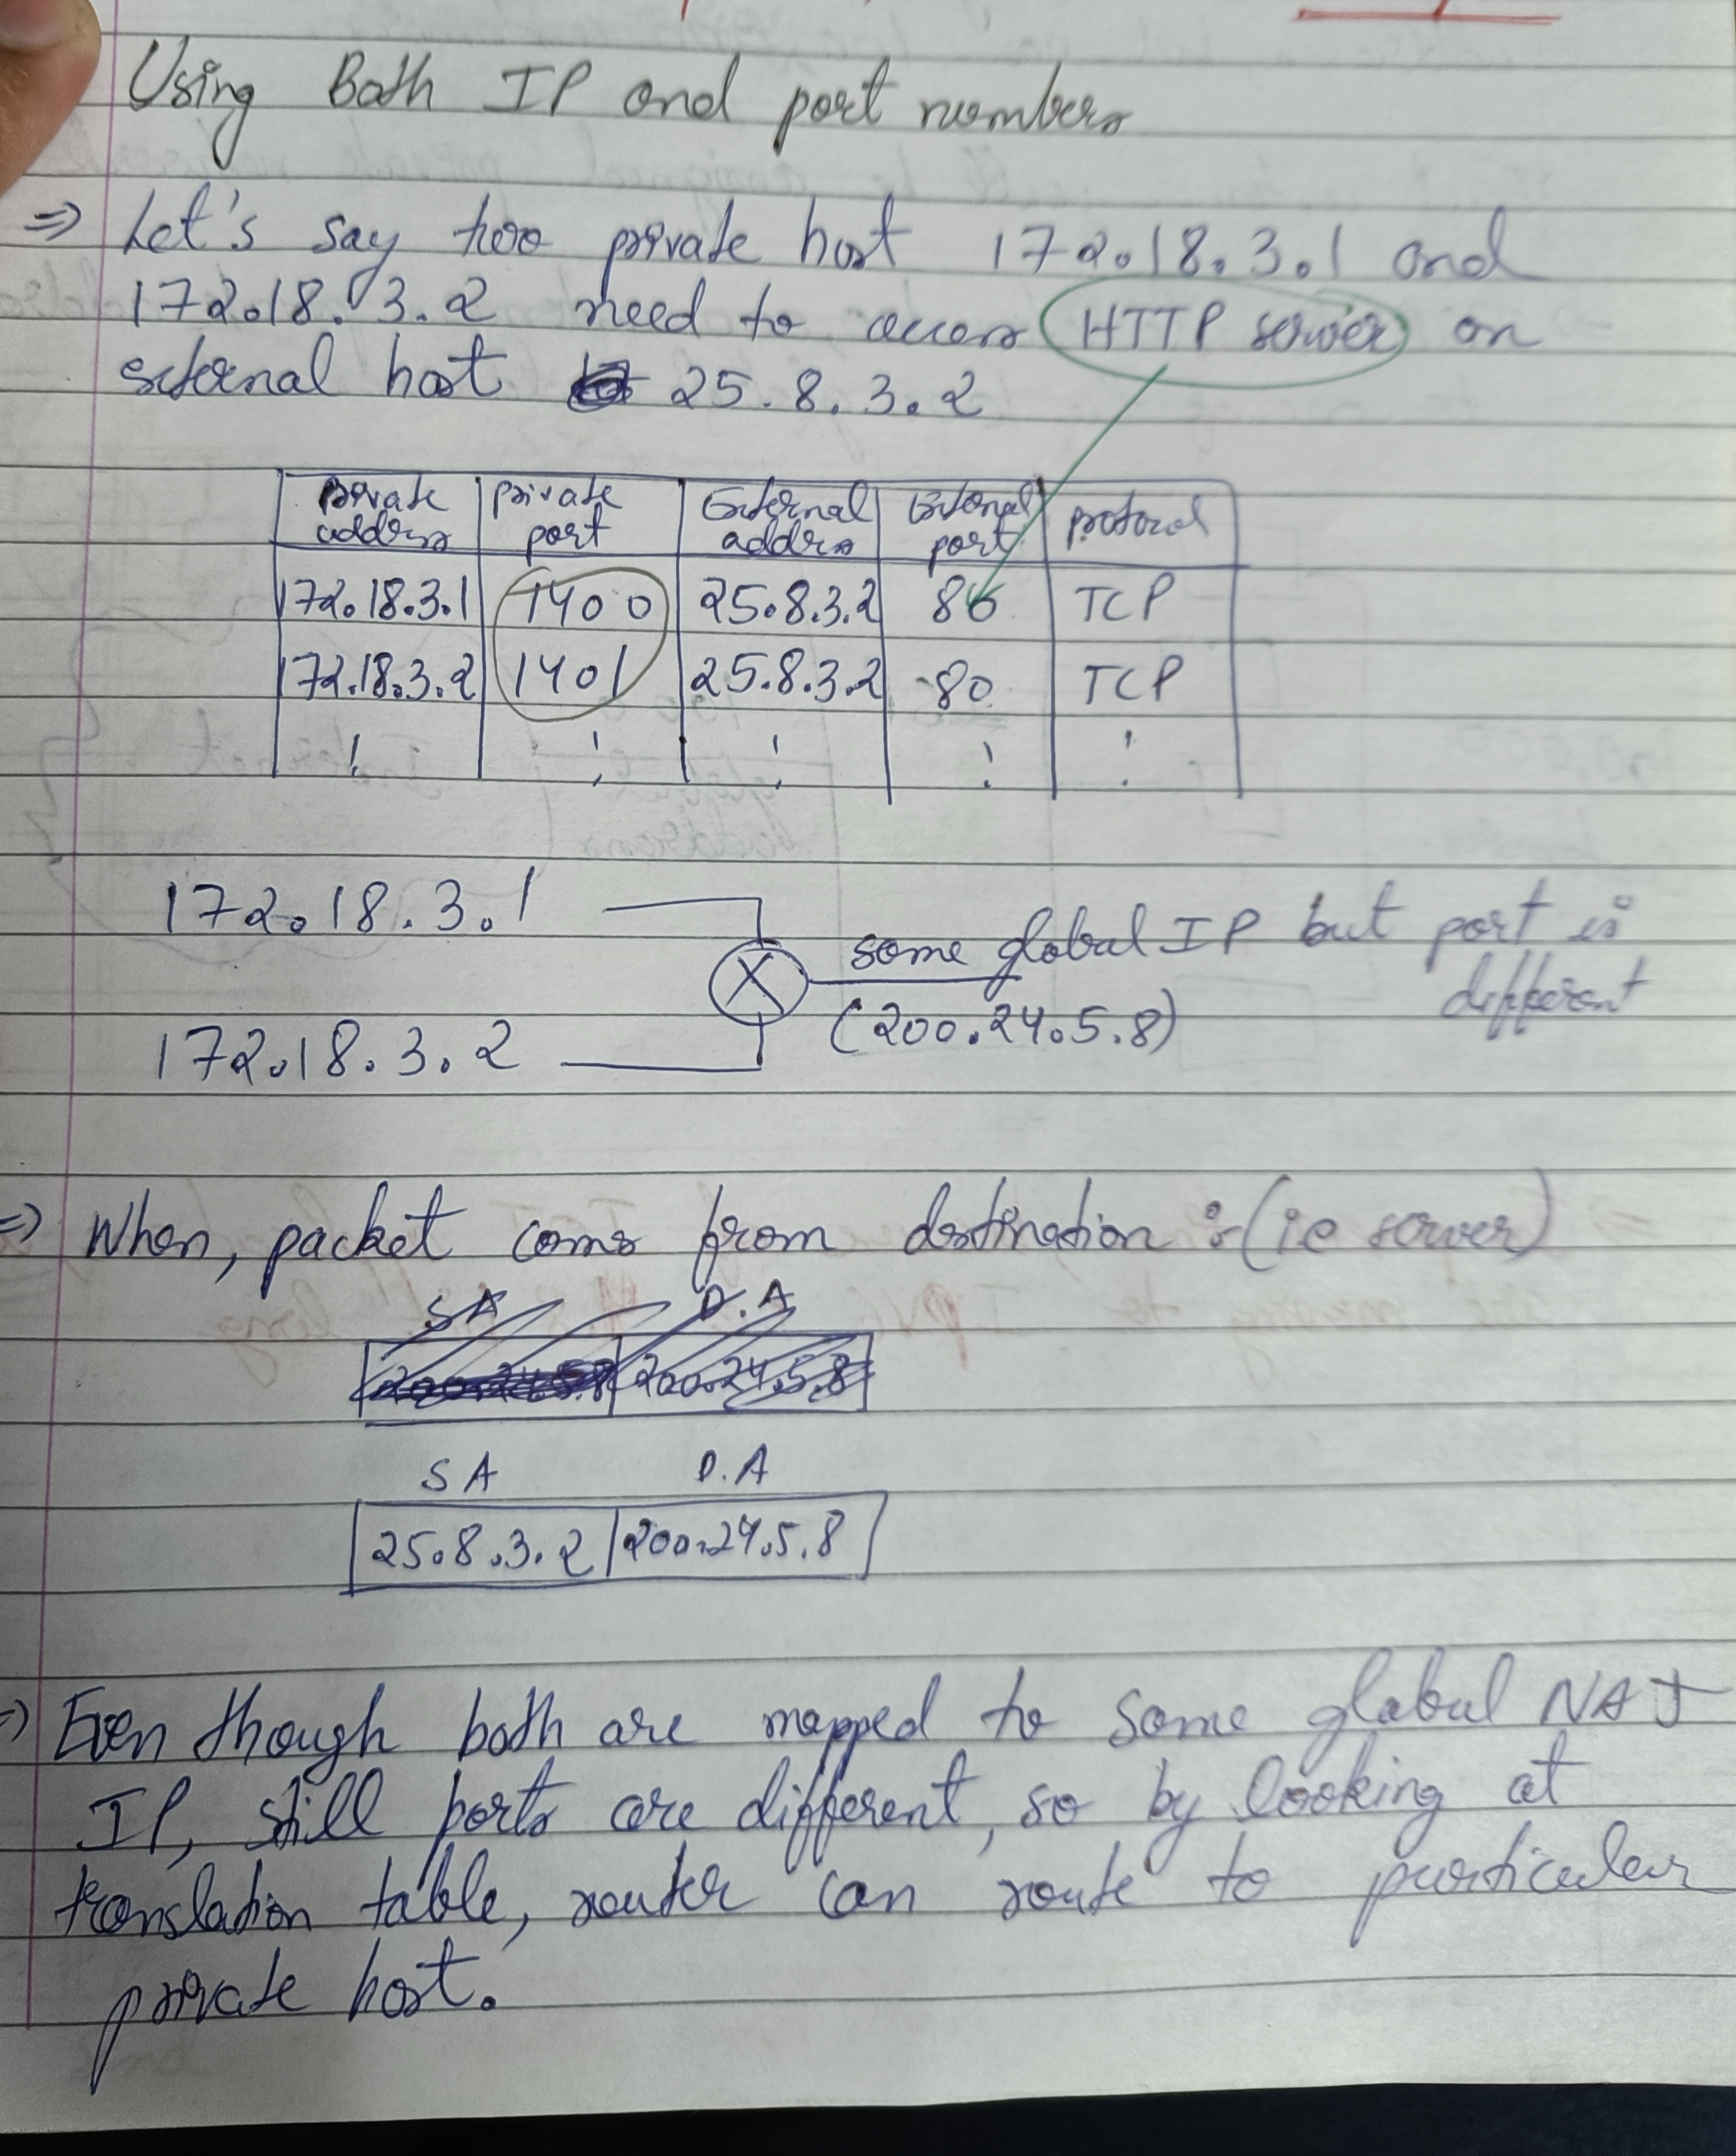 Using Both IP and port numbers
⇒ Let's say two private host 172.18.3.1 and
172.18.3.2 need to access HTTP server on
external host 25.8.3.2
private address | private port | External address | External port | protocol
172.18.3.1 | 1400 | 25.8.3.2 | 80 | TCP
172.18.3.2 | 1401 | 25.8.3.2 | 80 | TCP
172.18.3.1
same global IP but port is
different
(200.24.5.8)
172.18.3.2
⇒ When, packet coms from destination :- (ie server)
SA D.A
200.24.5.8 200.24.5.8
SA D.A
25.8.3.2 | 200.24.5.8
⇒ Even though both are mapped to same global NAT
IP, still ports are different, so by looking at
translation table, router can route to particular
private host.